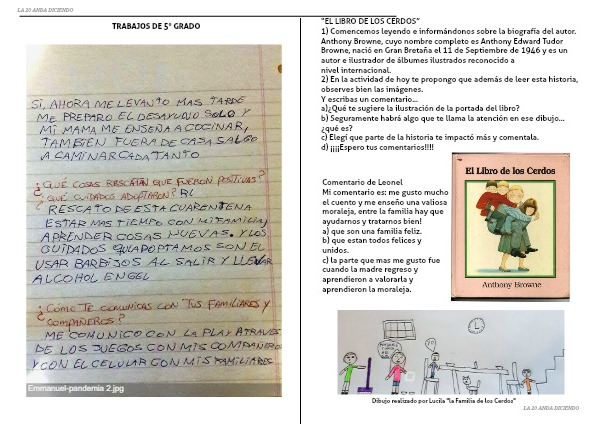 LA 20 ANDA DICIENDO
TRABAJOS DE 5° GRADO
SI, AHORA ME LEVANTO MAS TARDE
ME PREPARO EL DESAYUNO SOLO Y
MI MAMA ME ENSEÑA A COCINAR,
TAMBIEN FUERA DE CASA SALGO
A CAMINAR CADA TANTO
¿QUÉ COSAS RESCATAN QUE FUERON POSITIVAS?
¿QUE CUIDADOS ADOPTARON? R(
RESCATO DE ESTA CUARENTENA
ESTAR MAS TIEMPO CON MI FAMILIA,
APRENDER COSAS NUEVAS. Y LOS
CUIDADOS QUE ADOPTAMOS SON EL
USAR BARBIJOS AL SALIR Y LLEVAR
ALCOHOL EN GEL
¿CÓMO TE COMUNICAS CON TUS FAMILIARES Y
COMPAÑEROS?
ME COMUNICO CON LA PLAY ATRAVES
DE LOS JUEGOS CON MIS COMPAÑEROS
Y CON EL CELULAR CON MIS FAMILIARES
Emmanuel-pandemia 2.jpg
"EL LIBRO DE LOS CERDOS"
1) Comencemos leyendo e informándonos sobre la biografía del autor.
Anthony Browne, cuyo nombre completo es Anthony Edward Tudor
Browne, nació en Gran Bretaña el 11 de Septiembre de 1946 y es un
autor e ilustrador de álbumes ilustrados reconocido a
nivel internacional.
2) En la actividad de hoy te propongo que además de leer esta historia,
observes bien las imágenes.
Y escribas un comentario...
a)¿Qué te sugiere la ilustración de la portada del libro?
b) Seguramente habrá algo que te llama la atención en ese dibujo...
¿qué es?
c) Elegí que parte de la historia te impactó más y comentala.
d) ¡¡¡¡Espero tus comentarios!!!!
Comentario de Leonel
Mi comentario es: me gusto mucho
el cuento y me enseño una valiosa
moraleja, entre la familia hay que
ayudarnos y tratarnos bien!
a) que son una familia feliz.
b) que estan todos felices y
unidos.
c) la parte que mas me gusto fue
cuando la madre regreso y
aprendieron a valorarla y
aprendieron la moraleja.
El Libro de los Cerdos
Anthony Browne
Dibujo realizado por Lucila "la Familia de los Cerdos"
LA 20 ANDA DICIENDO